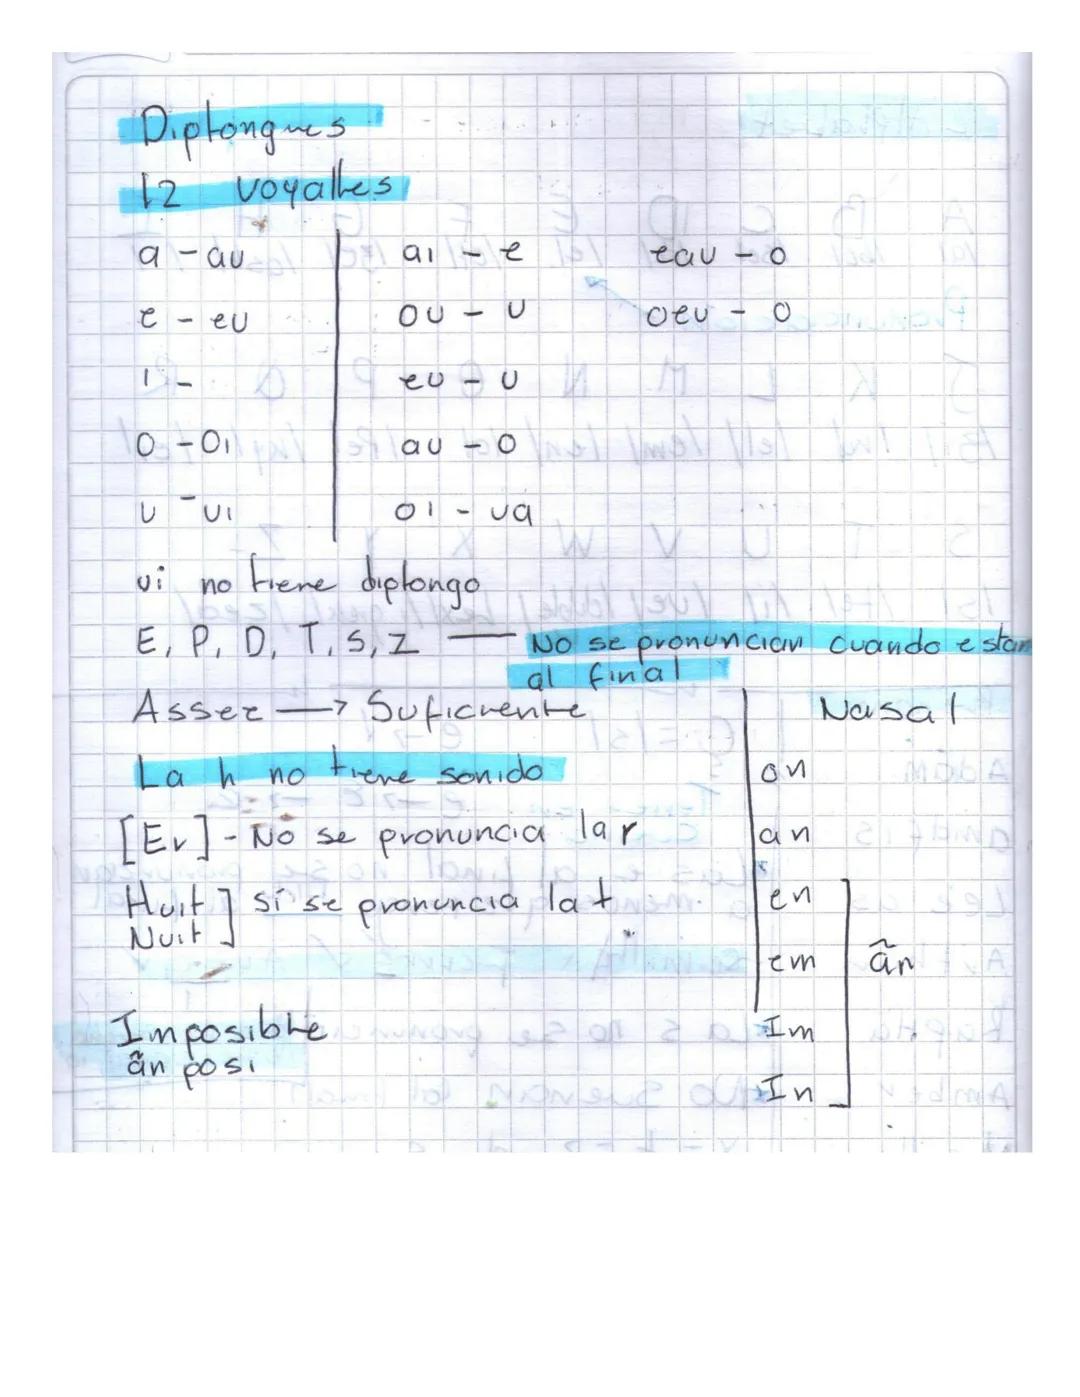 Diptongues
12 voyalles
a - au    ai - e    eau - o
e - eu    ou - u    oeu - o
i -    eu - u
o - oi    au - o
u - ui    oi - ua
ui no tiene diptongo
E, P, D, T, S, Z — No se pronuncian cuando estan
al final
Assez → Suficiente    Nasal
La h no tiene sonido    on
[Er] - No se pronuncia la r    an
Huit ] si se pronuncia la t    en
Nuit
em    ãn
Imposible    Im
ãn posi
In